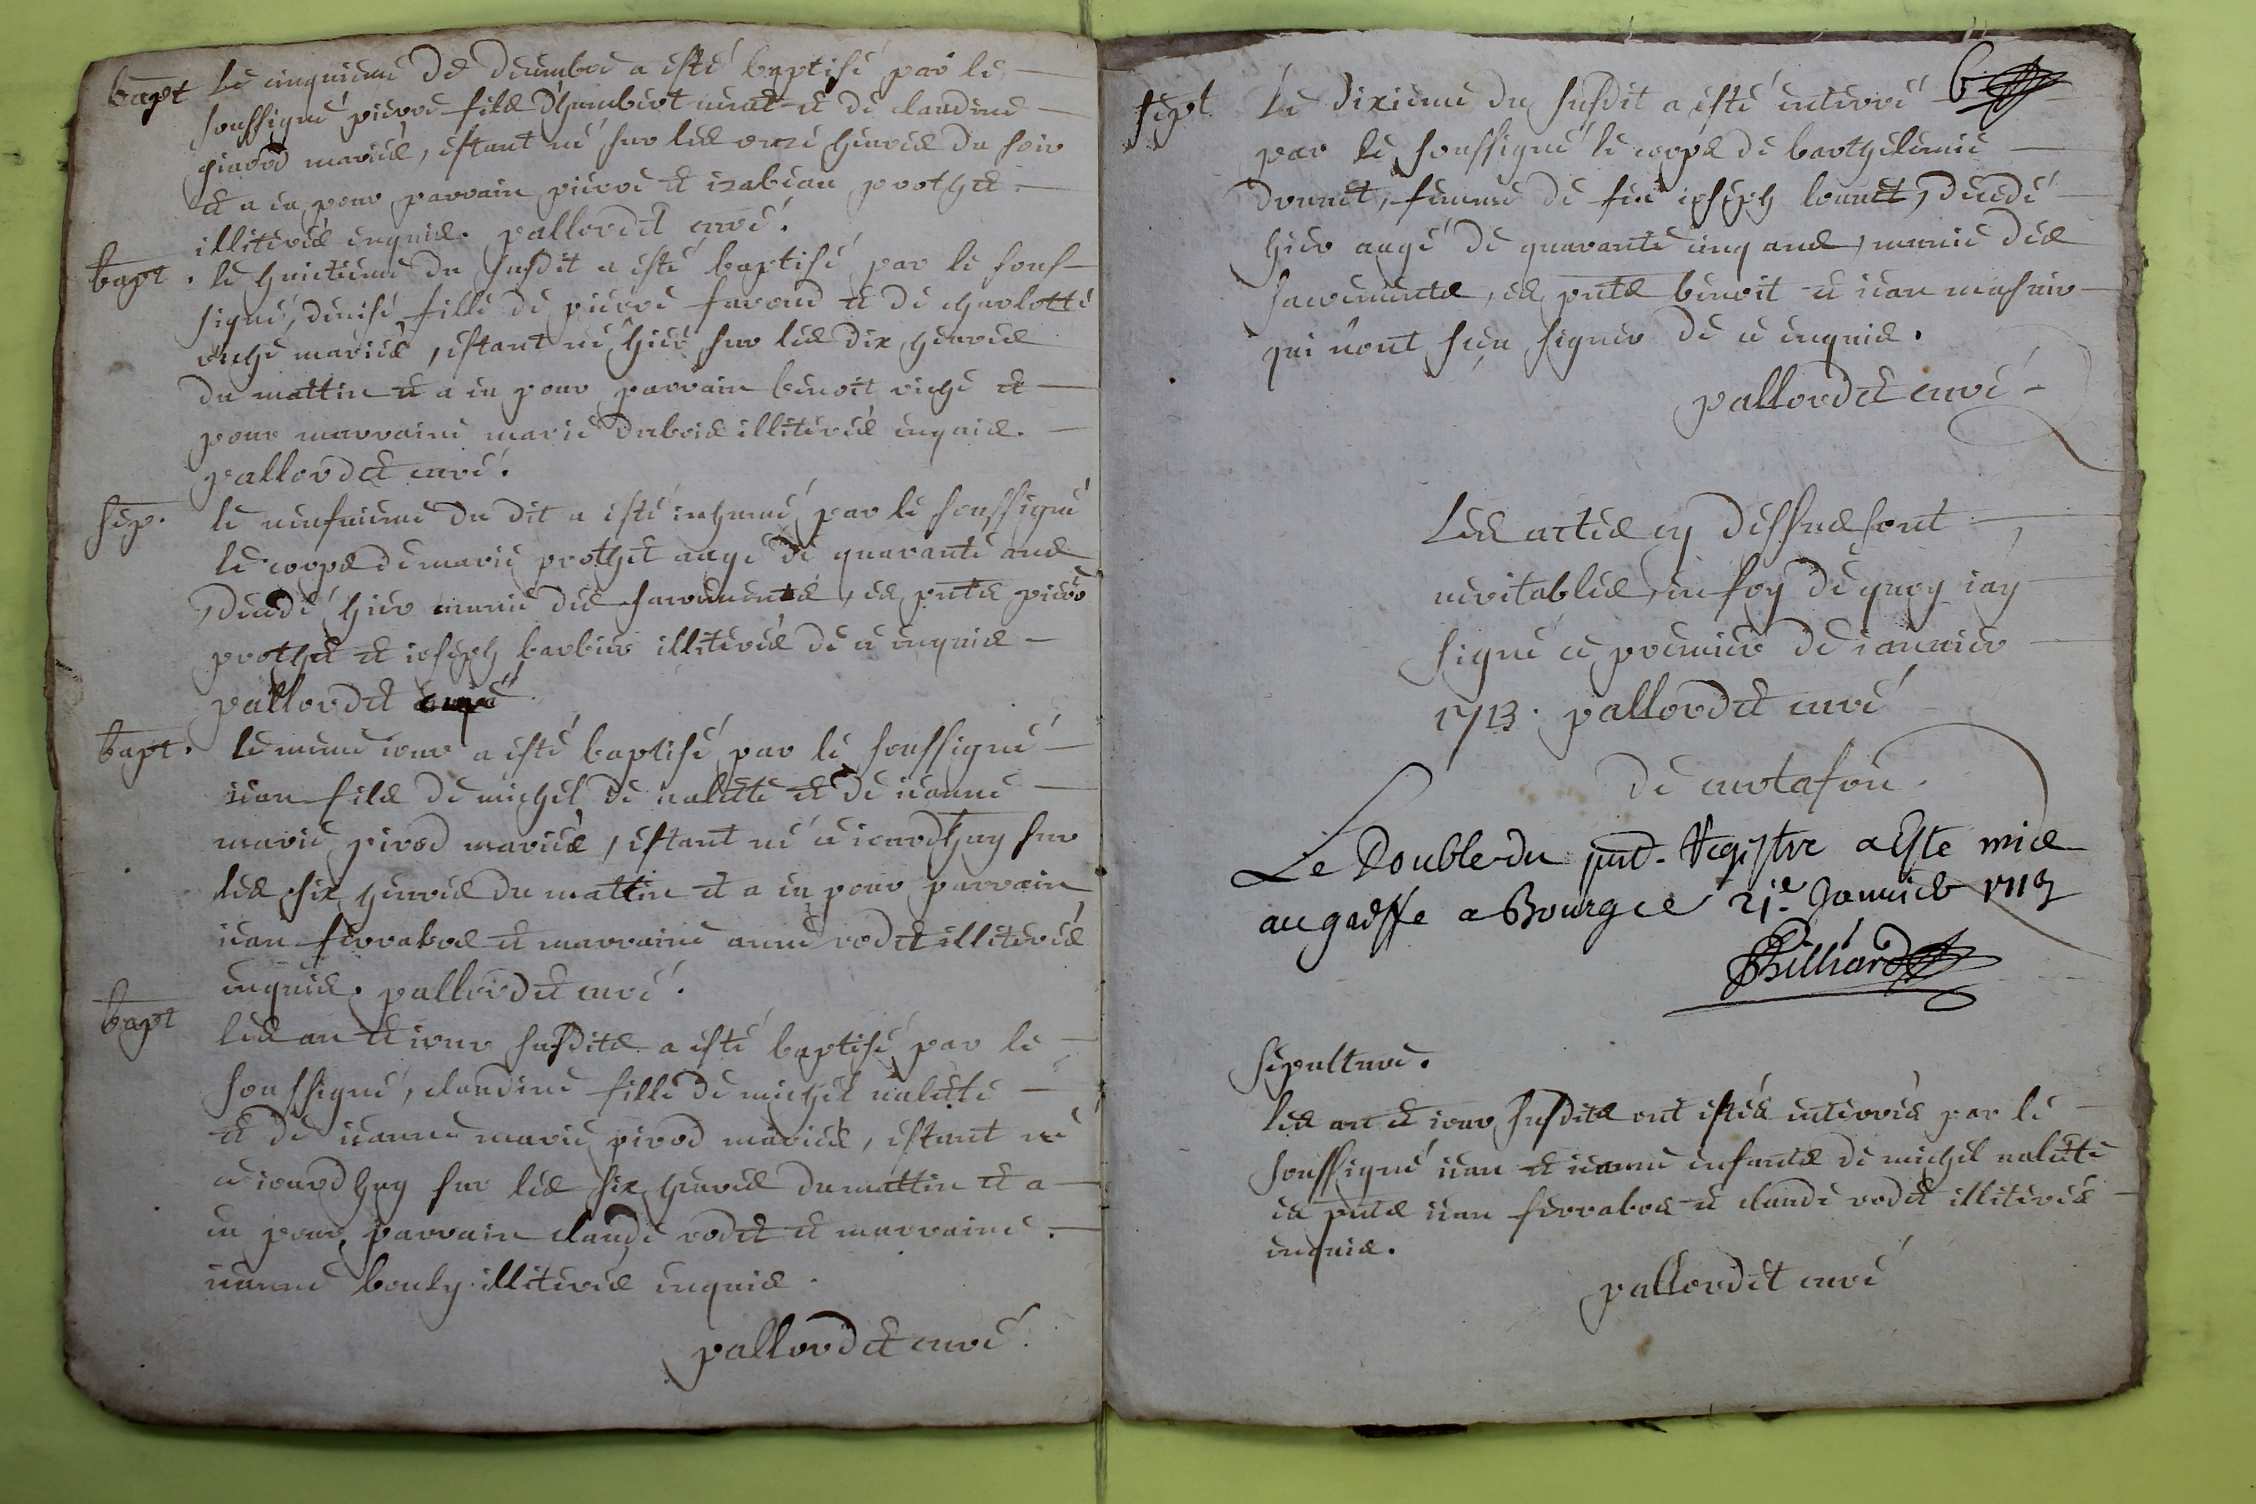 bapt le cinquieme de decembre a esté baptisé par le
soussigné pierre fils d'humbert et de claudine
girod mariés, estant né sur les onze heures du soir
et a eu pour parrain pierre et izabeau prothet
illiterés enquis. pallordet curé.
bapt. le huictieme du susdit a esté baptisé par le sous-
signé, denise fille de pierre favond et de charlotte
riche mariés, estant né hier sur les dix heures
du mattin et a eu pour parrain benoit riche et
pour marraine marie dubois illiterés enquis.
pallordet curé.
sep. le neufuieme du dit a esté inhumé par le soussigné
le corps de marie prothet aagé de quarante ans
decedé hier munie des sacrements, es pnts pierre
prothet et ioseph barbier illiterés de ce enquis
pallordet curé
bapt. le meme iour a esté baptisé par le soussigné
iean fils de michel de nalette et de ieanne
marie pirod mariés, estant né ce iourdhuy sur
les six heures du mattin et a eu pour parrain
iean ferrabos et marraine anne rodet illiterés
enquis. pallordet curé.
bapt les an et iour susdits a esté baptisé par le
soussigné, claudine fille de michel nalette
et de ieanne marie pirod mariés, estant né
ce iourdhuy sur les six heures du mattin et a
eu pour parrain claude rodet et marraine
ieanne bouly illiterés enquis.
pallordet curé.
6
sept. Le dixieme du susdit a esté enterré
par le soussigné le corps de barthelemie
donnet, femme de feu ioseph louuet, decedé
hier aagé de quarante cinq ans, munie des
sacrements, es pnts benoit et iean masnir
qui n'ont sceu signer de ce enquis.
pallordet curé
Les actes cy dessus sont
veritables, en foy de quoy iay
signé ce premier de ianuier
1713. pallordet curé
de curtafon.
Le Double du pnt. Registre a Este mis
au greffe a Bourg ce 21e Januier 1713
Billiard
sepulture.
les an et iour susdits ont estés enterrés par le
soussigné iean et ieanne enfants de michel nalette
es pnts iean ferrabos et claude rodet illiterés
enquis.
pallordet curé